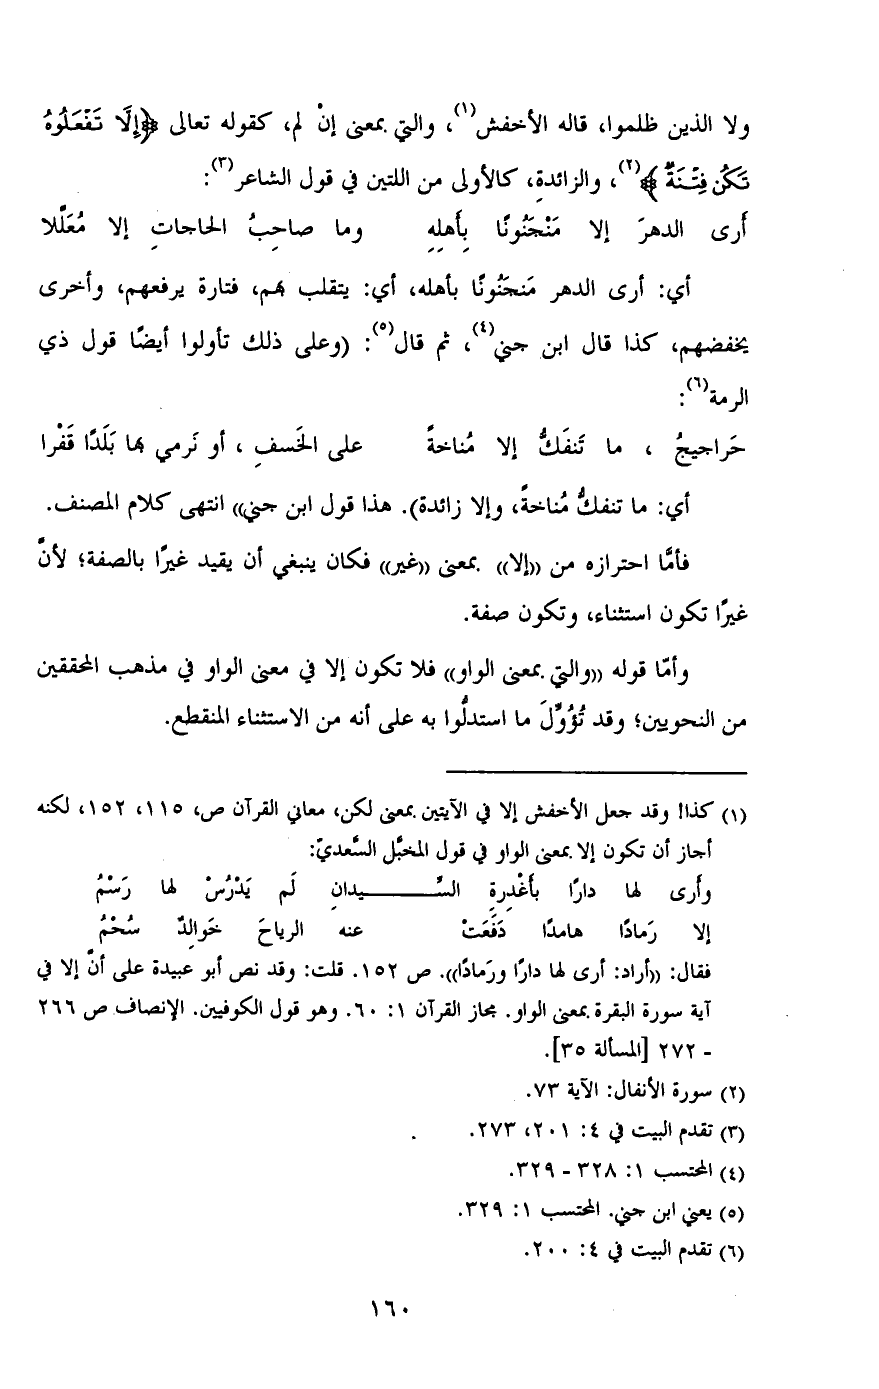 ولا الذين ظلموا، قاله الأخفش(١)، والتي بمعنى إنْ لم، كقوله تعالى ﴿إِلَّا تَفْعَلُوهُ
تَكُن فِتْنَةٌ﴾(٢)، والزائدةِ، كالأولى من اللتين في قول الشاعر(٣):
أَرى الدهرَ إلا مَنْجَنُونًا بِأَهلِهِ وما صاحِبُ الحاجاتِ إلا مُعَلَّلا
أي: أرى الدهر مَنجَنُونًا بأهله، أي: يتقلب بهم، فتارة يرفعهم، وأخرى
يخفضهم، كذا قال ابن جني(٤)، ثم قال(٥): (وعلى ذلك تأولوا أيضًا قول ذي
الرمة(٦):
حَراجيجُ ، ما تَنفَكُّ إلا مُناخةً على الخَسفِ ، أو نَرمي بها بَلَدًا قَفْرا
أي: ما تنفكُّ مُناخةً، وإلا زائدة). هذا قول ابن جني)) انتهى كلام المصنف.
فأمَّا احترازه من ((إلا)) بمعنى ((غير)) فكان ينبغي أن يقيد غيرًا بالصفة؛ لأنَّ
غيرًا تكون استثناء، وتكون صفة.
وأمّا قوله ((والتي بمعنى الواو)) فلا تكون إلا في معنى الواو في مذهب المحققين
من النحويين؛ وقد تُؤُوِّلَ ما استدلُّوا به على أنه من الاستثناء المنقطع.
(١) كذا! وقد جعل الأخفش إلا في الآيتين بمعنى لكن، معاني القرآن ص، ١١٥، ١٥٢، لكنه
أجاز أن تكون إلا بمعنى الواو في قول المخبَّل السَّعديّ:
وأَرى لها دارًا بأَغْدِرةِ السِّـــــيدانِ لَم يَدْرُسْ لها رَسْمُ
إلا رَمادًا هامدًا دَفَعَتْ عنه الرياحَ خَوالِدٌ سُحْمُ
فقال: ((أراد: أرى لها دارًا ورَمادًا)). ص ١٥٢. قلت: وقد نص أبو عبيدة على أنَّ إلا في
آية سورة البقرة بمعنى الواو. مجاز القرآن ١: ٦٠. وهو قول الكوفيين. الإنصاف ص ٢٦٦
- ٢٧٢ [المسألة ٣٥].
(٢) سورة الأنفال: الآية ٧٣.
(٣) تقدم البيت في ٤: ٢٠١، ٢٧٣.
(٤) المحتسب ١: ٣٢٨ - ٣٢٩.
(٥) يعني ابن جني. المحتسب ١: ٣٢٩.
(٦) تقدم البيت في ٤: ٢٠٠.
١٦٠